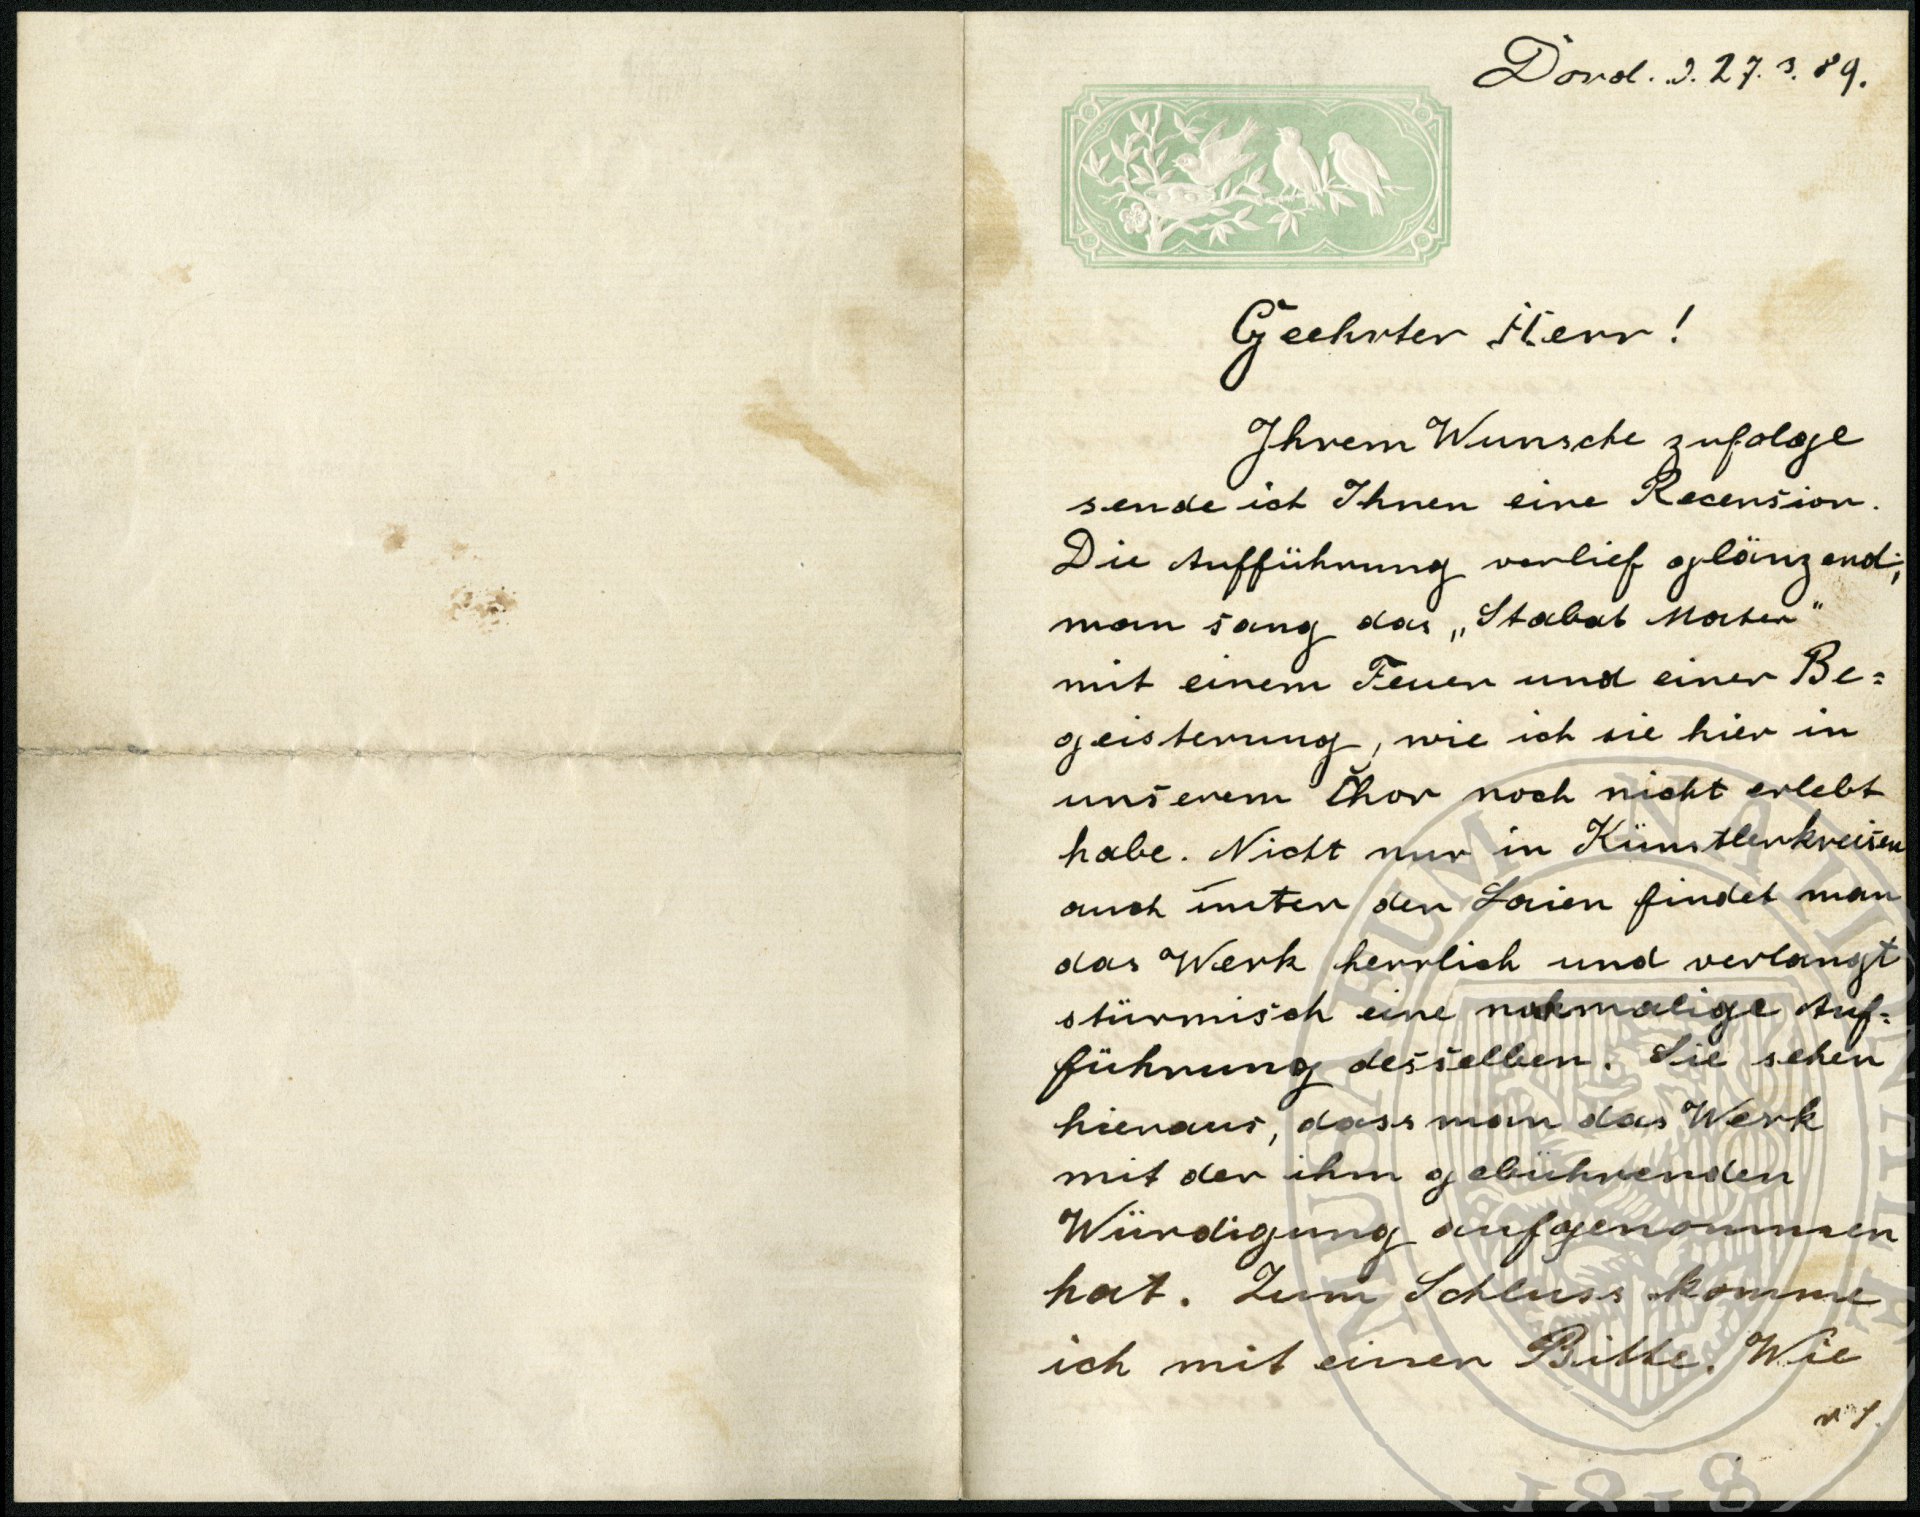 Dord. d. 27. 3. 89.
Geehrter Herr!
Ihrem Wunsche zufolge
sende ich Ihnen eine Recension.
Die Aufführung verlief glänzend;
man sang das „Stabat Mater"
mit einem Feuer und einer Be=
geisterung, wie ich sie hier in
unserem Chor noch nicht erlebt
habe. Nicht nur in Künstlerkreisen
auch unter den Laien findet man
das Werk herrlich und verlangt
stürmisch eine nochmalige Auf=
führung desselben. Sie sehen
hieraus, dass man das Werk
mit der ihm gebührenden
Würdigung aufgenommen
hat. Zum Schluss komme
ich mit einer Bitte. Wie
MUSAEUM
1818